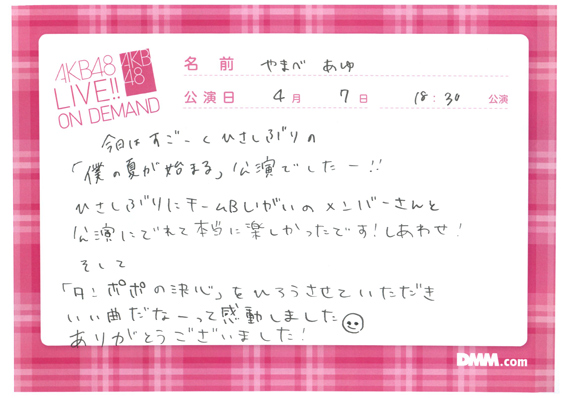 AKB48
LIVE!!
ON DEMAND
AKB
48
名前 やまべ あゆ
公演日 4月 7日 18:30 公演
今日はすごーくひさしぶりの
「僕の夏が始まる」公演でしたー!!
ひさしぶりにチームBいがいのメンバーさんと
公演にでれて本当に楽しかったです!しあわせ!
そして
「タンポポの決心」をひろうさせていただき
いい曲だなーって感動しました
ありがとうございました!
DMM.com